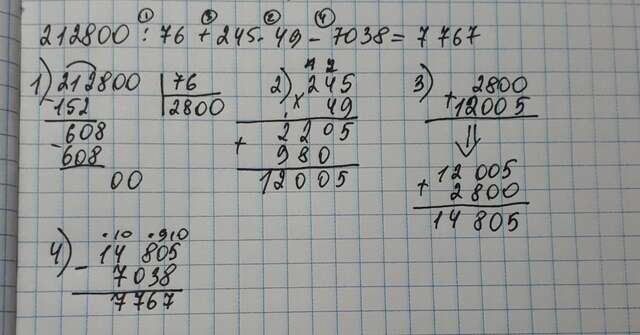 ① ③ ② ④
212800 : 76 + 245 · 49 - 7038 = 7767
1) 212800 76
- 152 2800
608
- 608
00
2) 4 2
245
× 49
+ 2205
980
12005
3) 2800
+ 12005
⇓
12 005
+ 2 800
14 805
4) . 10 . 9 10
14 805
- 7 038
7 767